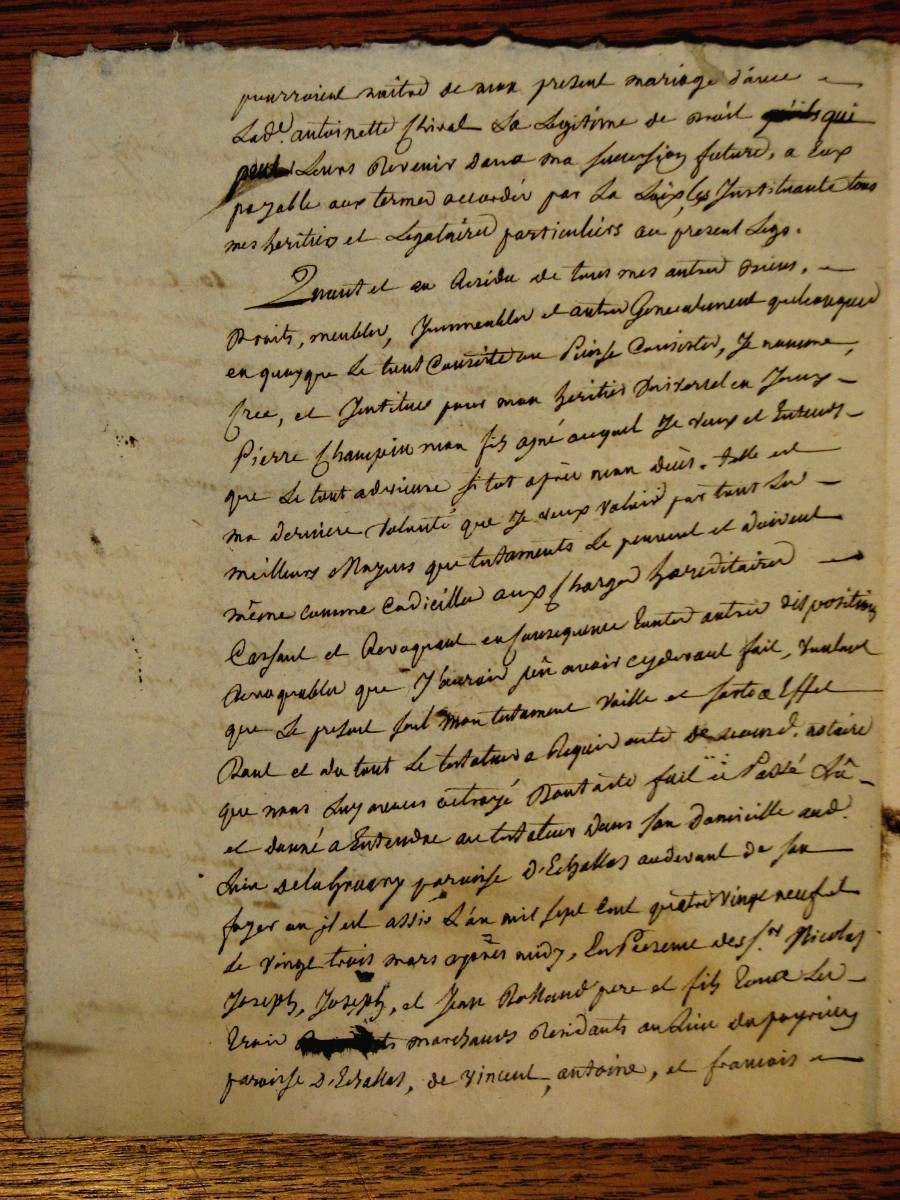 pourroient naitre de mon present mariage d'avec
Lad.e antoinette Chival La Legitime de droit qui
Leurs Revenir dans ma succession future, a Eux
payable aux termes accordés par La Loix, les Instituants tous
mes heritiers et Legataires particuliers au present Legs.
Quant et au Residu de tous mes autres biens,
Droits, meubles, Immeubles et autres Generalement quelconques
en quoy que Le tout Consiste ou Puisse Consister, Je nomme,
Cree, et Institue pour mon heritier Universel en Iceux
Pierre Champin mon fils ayné auquel Je veux et Entends
que Le tout advienne si tot après mon décès. telle est
ma derniere volonté que Je veux valoir par tous Les
meilleurs Moyens que testaments Le peuvent et doivent
même comme Codicille aux Charges hæreditaires
Cassant et Revoquant en Consequence toutes autres dispositions
Revoquables que J'aurois pû avoir cydevant fait, voulant
que Le present soit mon testament vaille et sorte a Effet
Dont et du tout Le testateur a Requis acte de nousd. notaire
que nous Luy avons octroyé Dont acte fait et Passé Lû
et donné a Entendre au testateur dans son Domicille aud.
Lieu de paroisse D'Echallas audevant de son
foyer ou il est assis L'an mil sept cent quatre vingt neuf et
Le vingt trois mars après midy, En Presence des s.rs Nicolas
Joseph, Joseph, et Jean Rolland pere et fils tous Les
trois marchands Residants au Lieu du
paroisse D'Echallas, de vincent, antoine, et francois